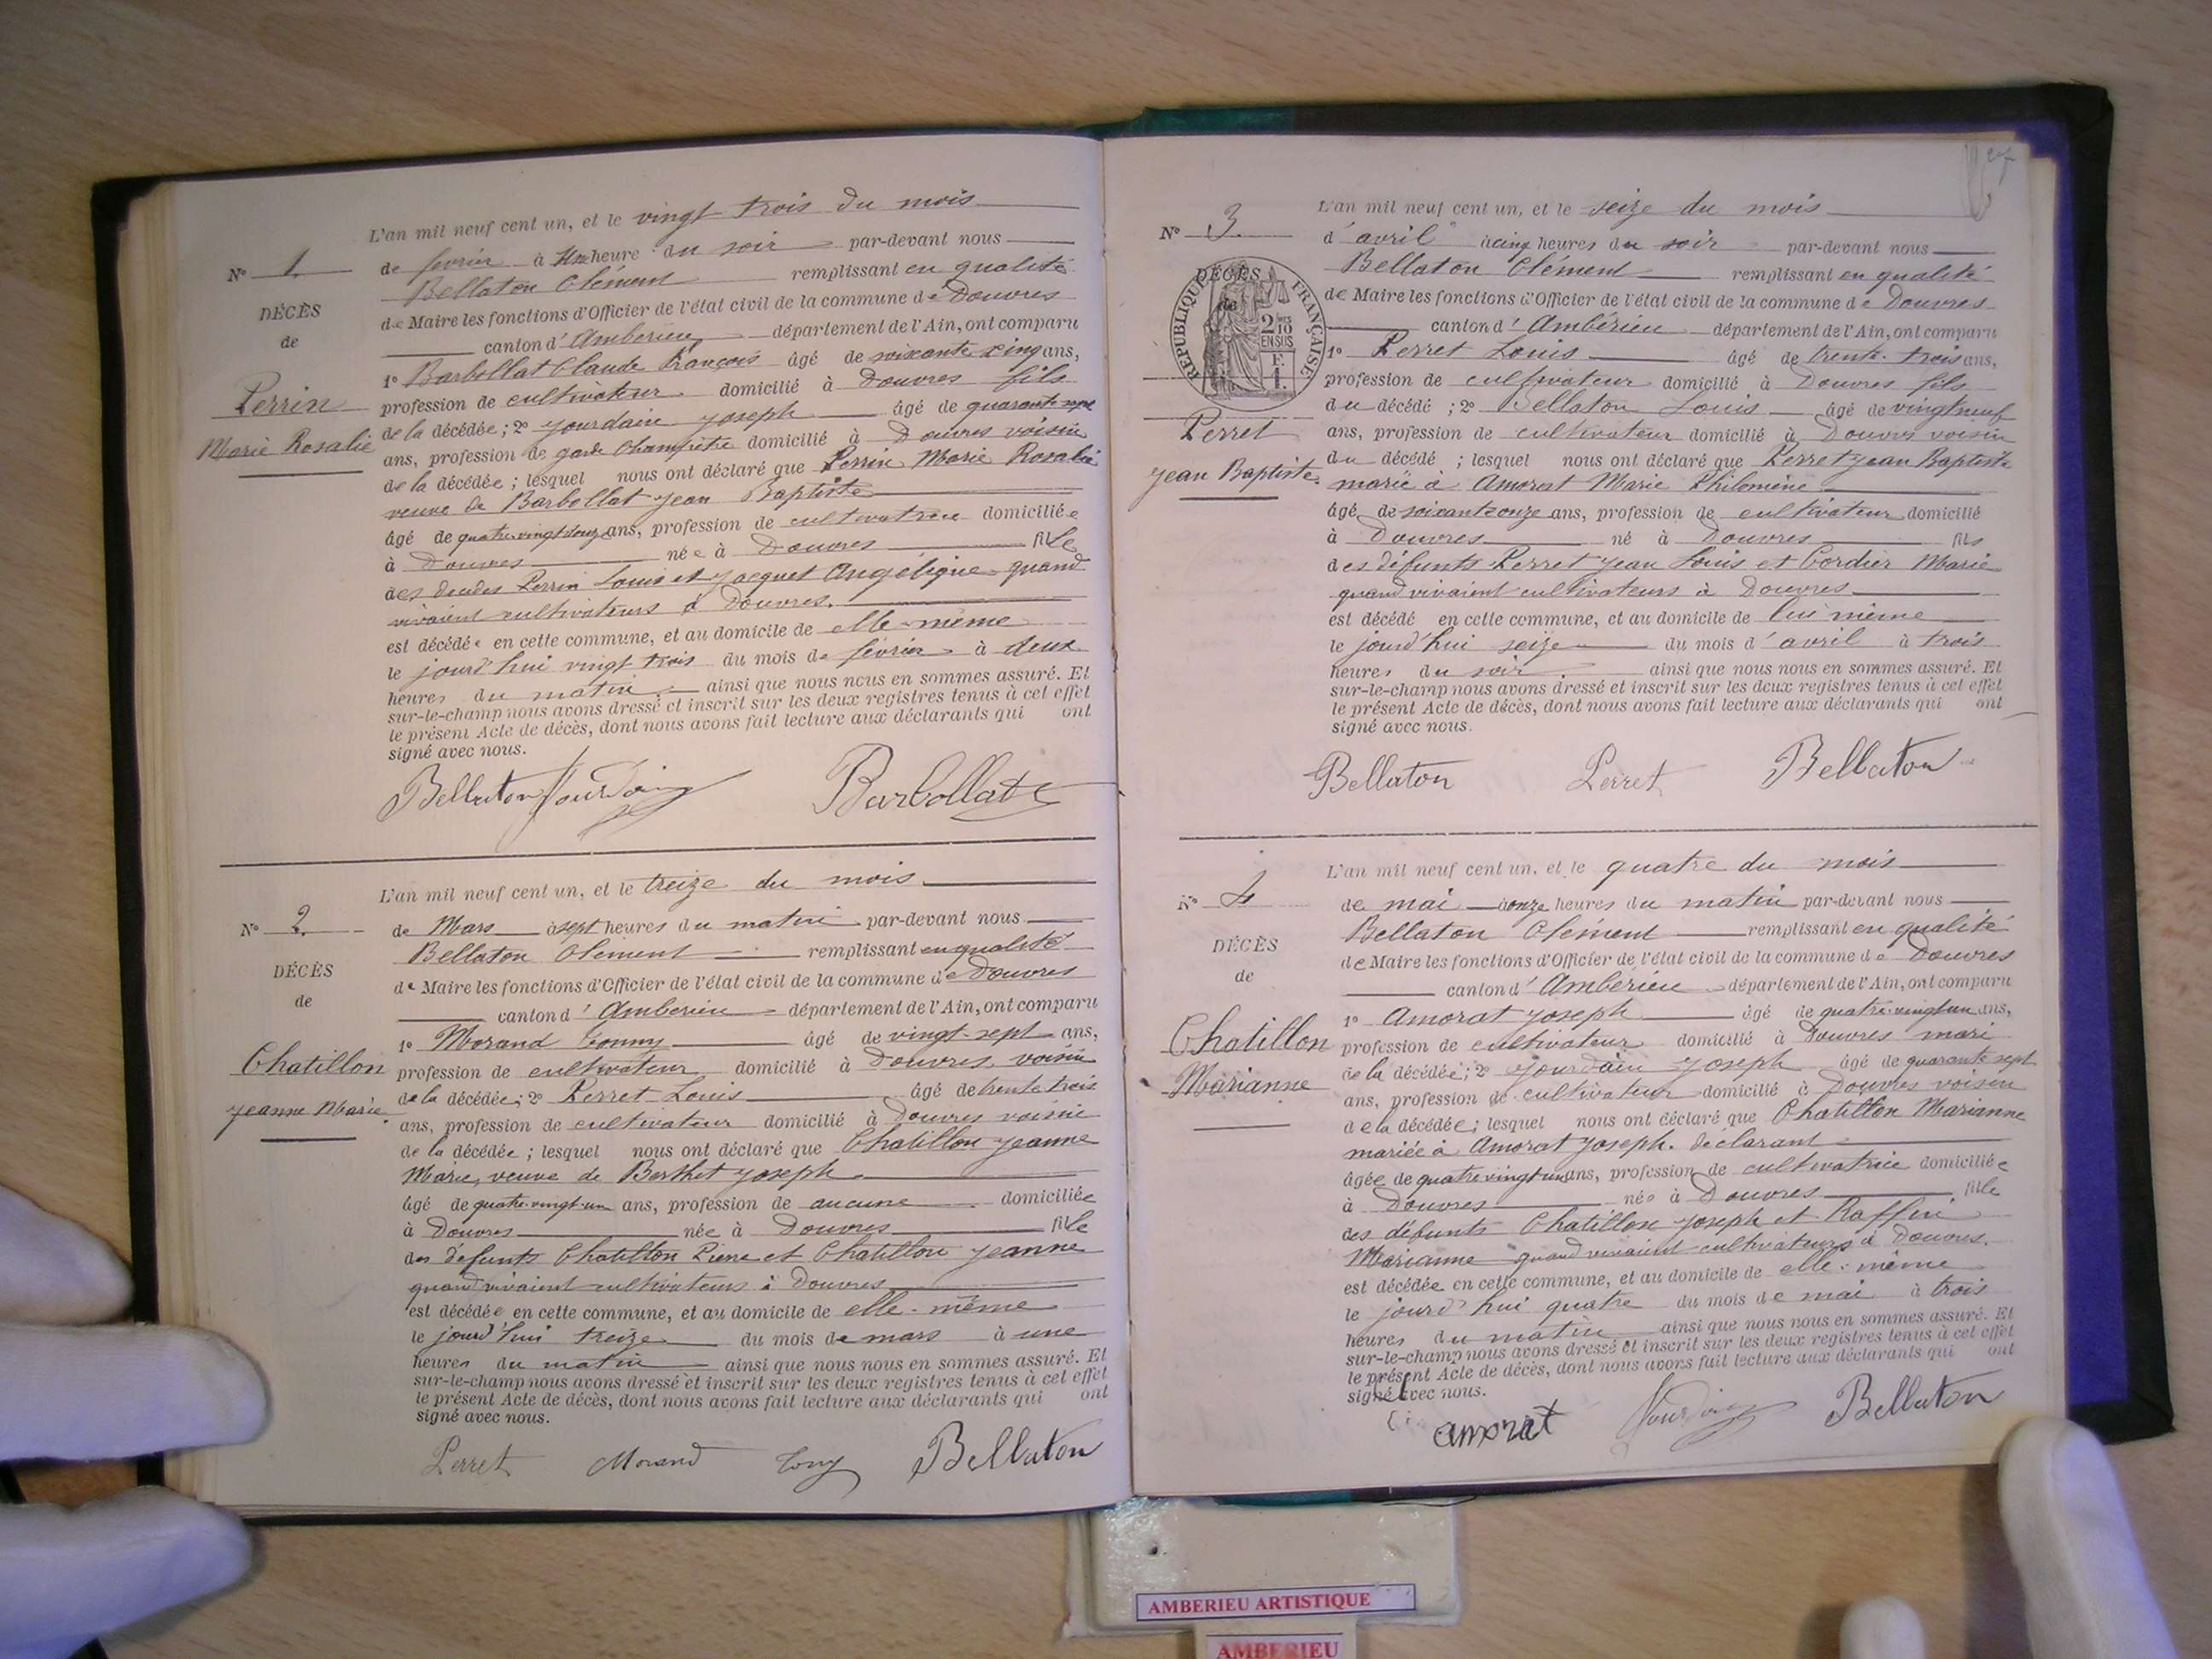 L'an mil neuf cent un, et le vingt trois du mois
N° 1. de février à Une heure du soir par-devant nous
Bellaton Clément remplissant en qualité
DÉCÈS
de Maire les fonctions d'Officier de l'état civil de la commune de Douvres
de
canton d'Amberieu département de l'Ain, ont comparu
1° Barbollat Claude François âgé de soixante cinq ans,
Perrin
profession de cultivateur domicilié à Douvres fils
de la décédée; 2° Jourdain Joseph âgé de quarante sept
Marie Rosalie
ans, profession de garde Champêtre domicilié à Douvres voisin
de la décédée; lesquel nous ont déclaré que Perrin Marie Rosalie
veuve de Barbollat Jean Baptiste
âgé de ans, profession de cultivatrice domiciliée
à Douvres née à Douvres fille
des Perrin Louis et Jacquet Angélique quand
vivaient cultivateurs à Douvres.
est décédée en cette commune, et au domicile de elle-même
le jourd'hui vingt trois du mois de février à deux
heures du matin ainsi que nous nous en sommes assuré. Et
sur-le-champ nous avons dressé et inscrit sur les deux registres tenus à cet effet
le présent Acte de décès, dont nous avons fait lecture aux déclarants qui ont
signé avec nous.
Bellaton Jourdain Barbollat
L'an mil neuf cent un, et le treize du mois
N° 2. de Mars à sept heures du matin par-devant nous
Bellaton Clément remplissant en qualité
DÉCÈS
de Maire les fonctions d'Officier de l'état civil de la commune de Douvres
de
canton d'Amberieu département de l'Ain, ont comparu
1° Morand Tonny âgé de vingt-sept ans,
Chatillon
profession de cultivateur domicilié à Douvres voisin
de la décédée; 2° Perret Louis âgé de trente trois
Jeanne Marie
ans, profession de cultivateur domicilié à Douvres voisin
de la décédée; lesquel nous ont déclaré que Chatillon Jeanne
Marie, veuve de Berthet Joseph
âgé de quatre-vingt-un ans, profession de aucune domiciliée
à Douvres née à Douvres fille
des défunts Chatillon Pierre et Chatillon Jeanne
quand vivaient cultivateurs à Douvres
est décédée en cette commune, et au domicile de elle-même
le jourd'hui treize du mois de mars à une
heures du matin ainsi que nous nous en sommes assuré. Et
sur-le-champ nous avons dressé et inscrit sur les deux registres tenus à cet effet
le présent Acte de décès, dont nous avons fait lecture aux déclarants qui ont
signé avec nous.
Perret Morand Tony Bellaton
L'an mil neuf cent un, et le seize du mois
N° 3. d'avril à cinq heures du soir par-devant nous
Bellaton Clément remplissant en qualité
DÉCÈS
de
RÉPUBLIQUE FRANÇAISE
2/10 EN SUS
de Maire les fonctions d'Officier de l'état civil de la commune de Douvres
canton d'Ambérieu département de l'Ain, ont comparu
1° Perret Louis âgé de trente-trois ans,
profession de cultivateur domicilié à Douvres fils
du décédé; 2° Bellaton Louis âgé de vingt neuf
Perret
ans, profession de cultivateur domicilié à Douvres voisin
du décédé; lesquel nous ont déclaré que Perret Jean Baptiste
Jean Baptiste.
marié à Amorat Marie Philomène
âgé de soixante onze ans, profession de cultivateur domicilié
à Douvres né à Douvres fils
des défunts Perret Jean Louis et Cordier Marie
quand vivaient cultivateurs à Douvres
est décédé en cette commune, et au domicile de lui même
le jourd'hui seize du mois d'avril à trois
heures du soir. ainsi que nous nous en sommes assuré. Et
sur-le-champ nous avons dressé et inscrit sur les deux registres tenus à cet effet
le présent Acte de décès, dont nous avons fait lecture aux déclarants qui ont
signé avec nous.
Bellaton Perret Bellaton
L'an mil neuf cent un, et le quatre du mois
N° 4 de mai à onze heures du matin par-devant nous
Bellaton Clément remplissant en qualité
DÉCÈS
de Maire les fonctions d'Officier de l'état civil de la commune de Douvres
de
canton d'Ambérieu département de l'Ain, ont comparu
1° Amorat Joseph âgé de quatre-vingt un ans,
Chatillon
profession de cultivateur domicilié à Douvres mari
de la décédée; 2° Jourdain Joseph âgé de quarante sept
Marianne
ans, profession de cultivateur domicilié à Douvres voisin
de la décédée; lesquel nous ont déclaré que Chatillon Marianne
mariée à Amorat Joseph. déclarant
âgée de quatre vingt un ans, profession de cultivatrice domiciliée
à Douvres née à Douvres fille
des défunts Chatillon Joseph et Raffin
Marianne quand vivaient cultivateurs à Douvres.
est décédée en cette commune, et au domicile de elle-même
le jourd'hui quatre du mois de mai à trois
heures du matin ainsi que nous nous en sommes assuré. Et
sur-le-champ nous avons dressé et inscrit sur les deux registres tenus à cet effet
le présent Acte de décès, dont nous avons fait lecture aux déclarants qui ont
signé avec nous.
amorat Jourdain Bellaton
AMBERIEU ARTISTIQUE
AMBERIEU